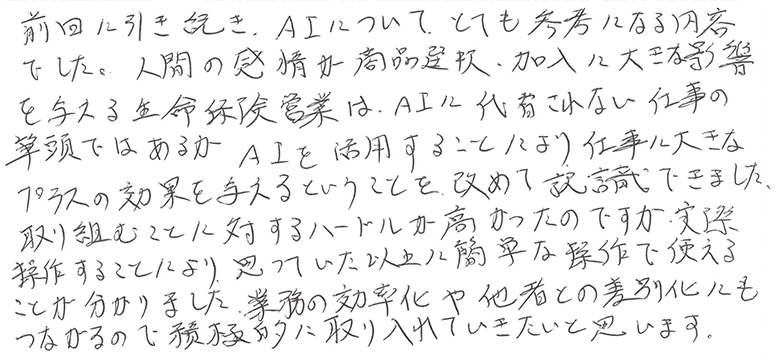 前回に引き続き、AIについて、とても参考になる内容
でした。人間の感情が商品選択、加入に大きな影響
を与える生命保険営業は、AIに代替されない仕事の
筆頭ではあるが AIを活用することにより仕事に大きな
プラスの効果を与えるということを、改めて認識できました、
取り組むことに対するハードルが高かったのですが、実際
操作することにより、思っていた以上に簡単な操作で使える
ことが分かりました、業務の効率化や他者との差別化にも
つながるので積極的に取り入れていきたいと思います。